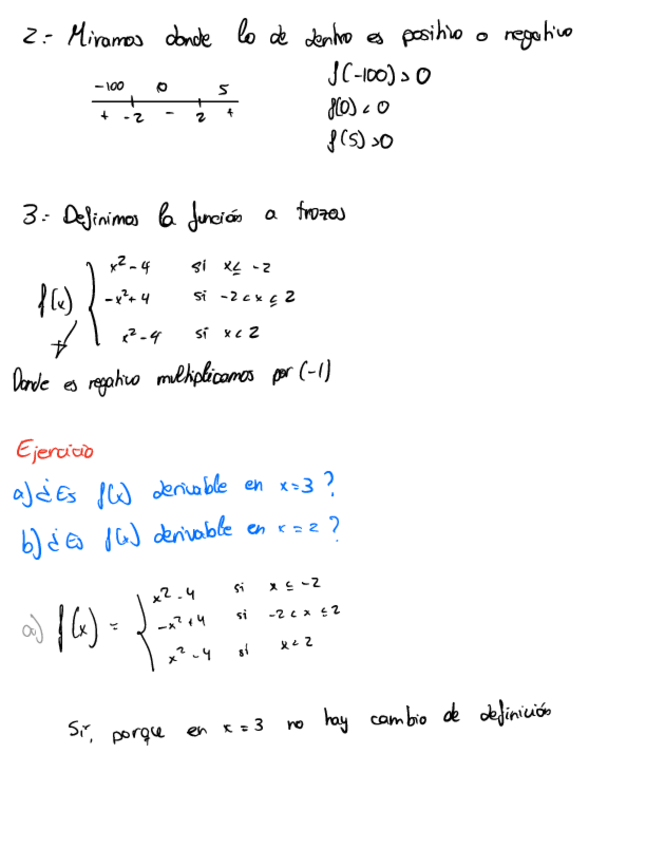 2.- Miramos donde lo de dentro es positivo o negativo
-100 0 5
+ -2 - 2 +
f(-100) > 0
f(0) < 0
f(5) > 0
3.- Definimos la función a trozos
f(x) { x² - 4 si x ≤ -2
-x² + 4 si -2 < x ≤ 2
x² - 4 si x < 2
Donde es negativo multiplicamos por (-1)
Ejercicio
a) ¿Es f(x) derivable en x = 3?
b) ¿Es f(x) derivable en x = 2?
a) f(x) = { x² - 4 si x ≤ -2
-x² + 4 si -2 < x ≤ 2
x² - 4 si x < 2
Sí, porque en x = 3 no hay cambio de definición